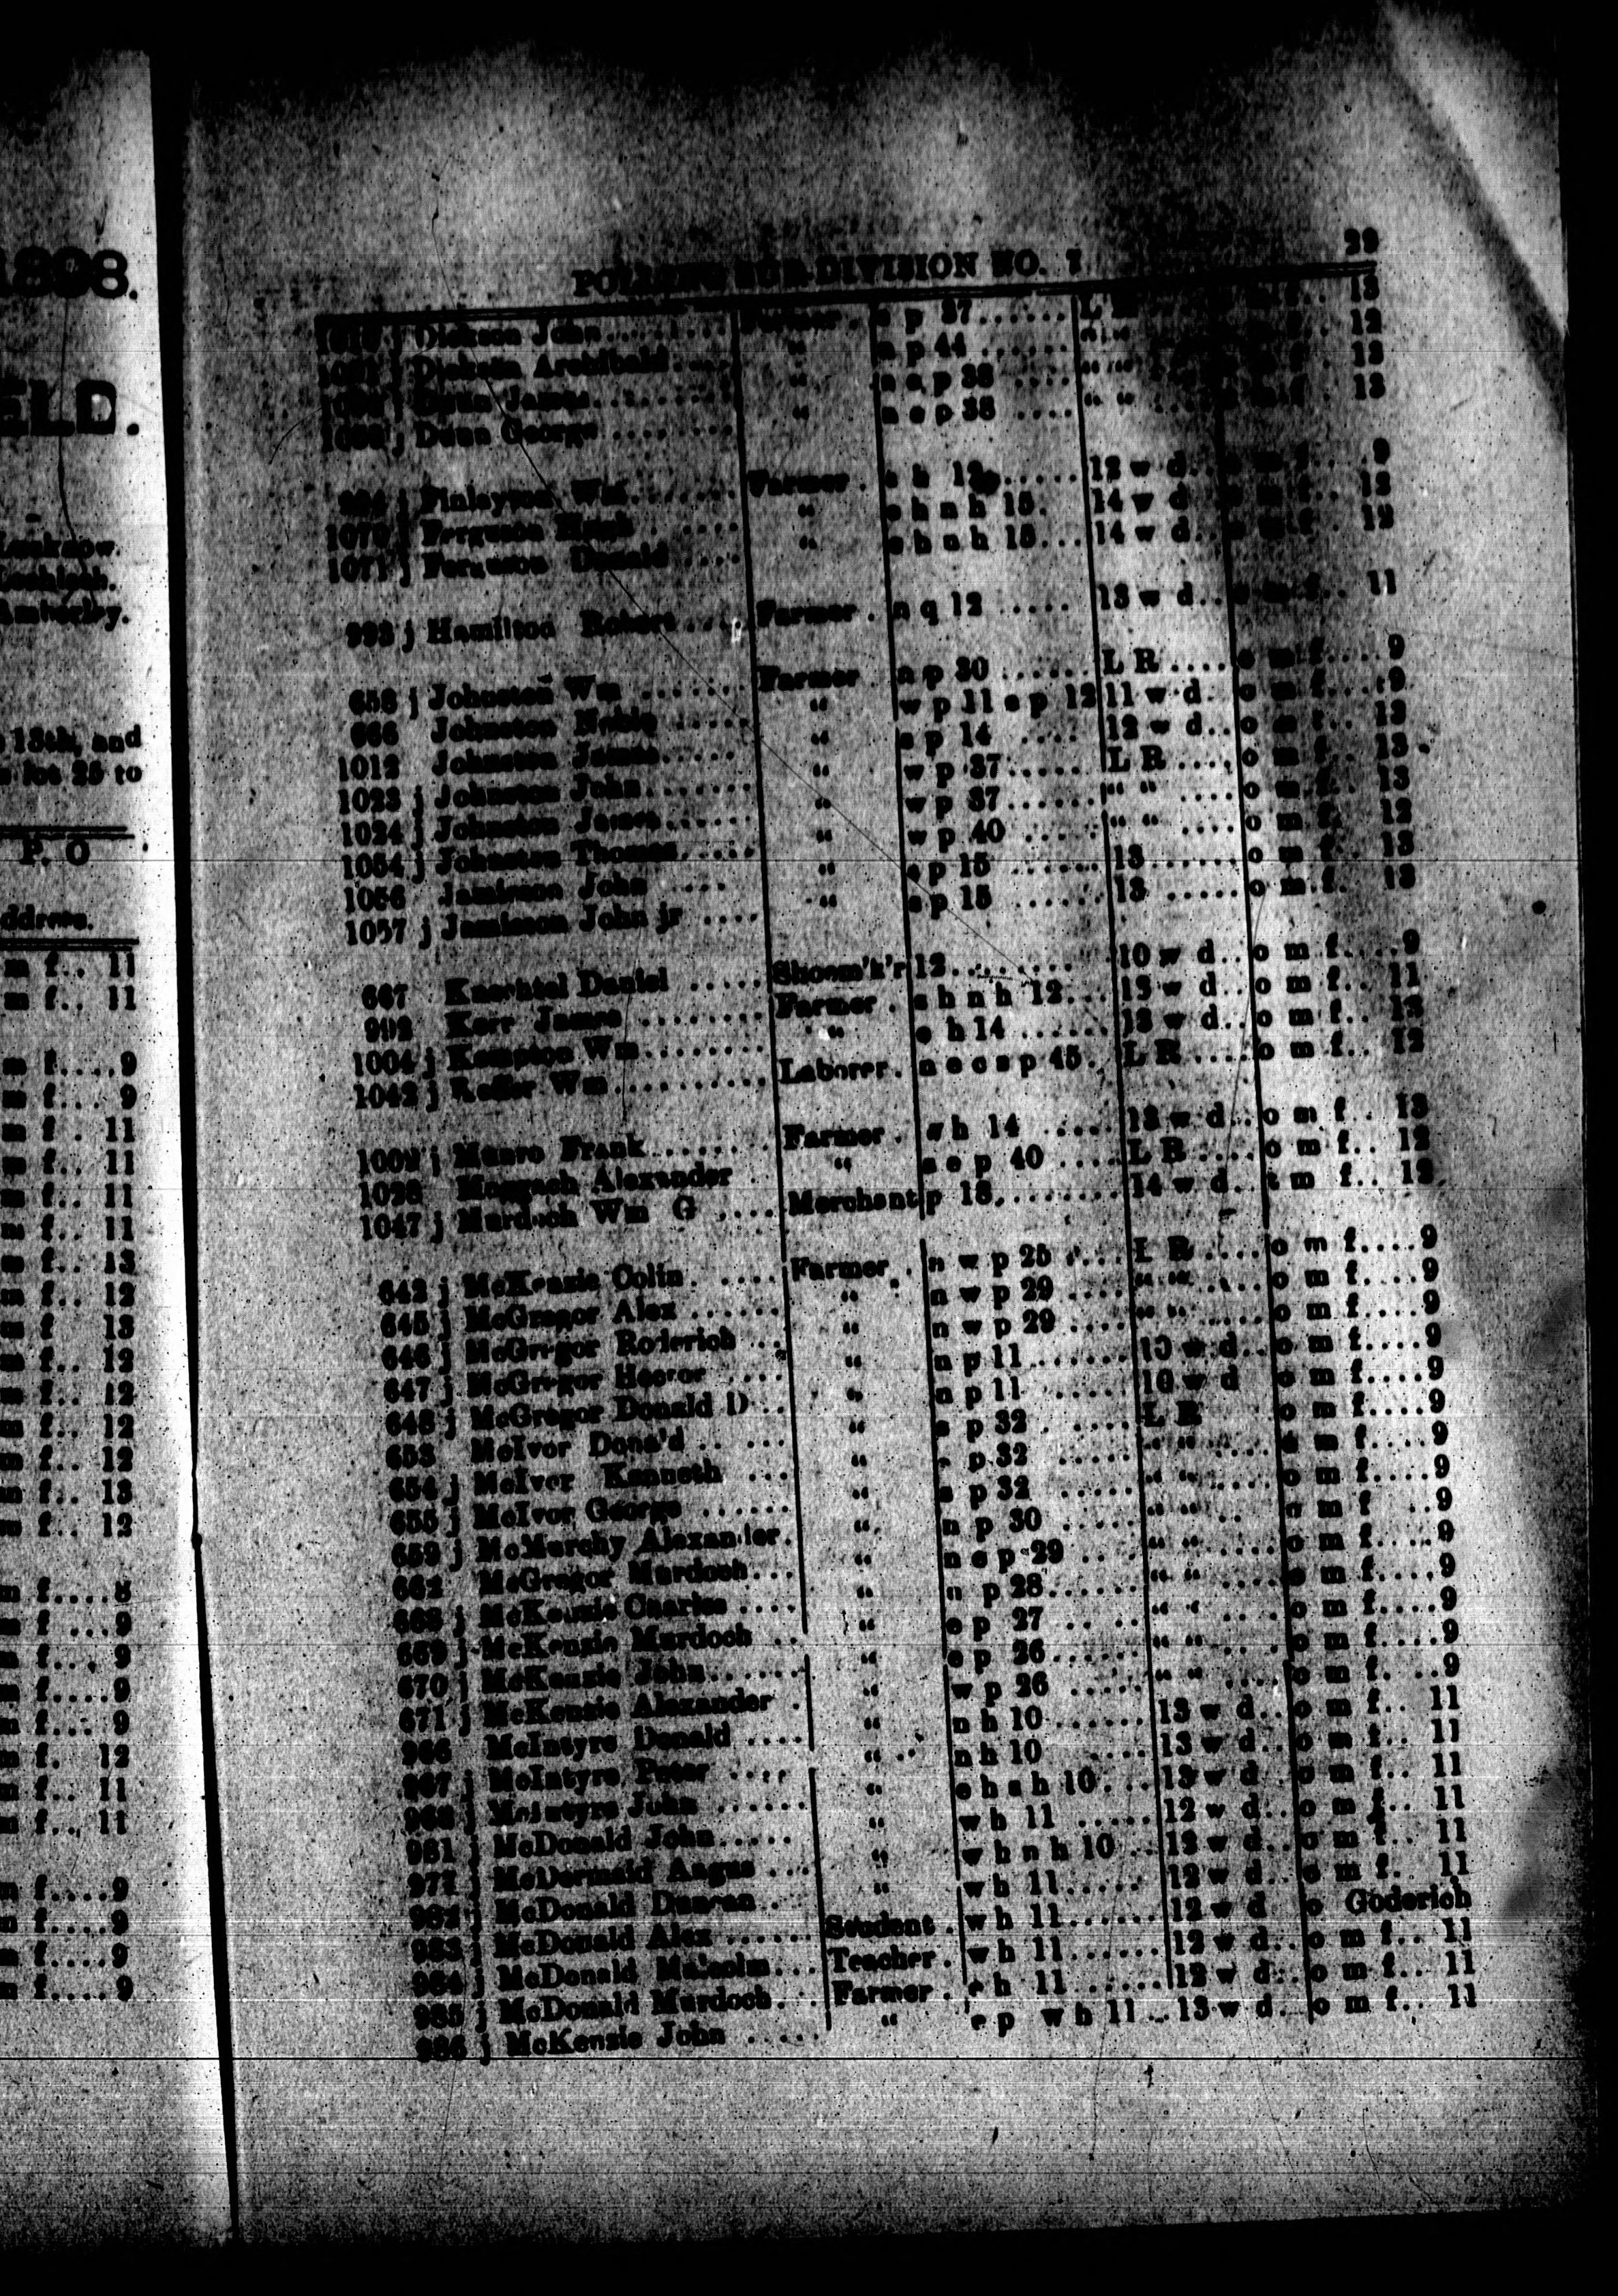 1898.
ELD.
Lucknow.
Lochlsh.
Amberley.
13th, and
lot 25 to
P. O
ddress.
m f.. 11
m f.. 11
m f....9
m f... 9
m f . 11
m f.. 11
m f.. 11
m f.. 11
m f.. 13
m f.. 12
m f 13
m f.. 12
m f.. 12
m f.. 12
m f.. 12
m f.. 13
m f.. 12
m f....8
m f ...9
m f... 9
m f....9
m f... 9
m f. 12
m f.. 11
m f.. 11
m f....9
m f....9
m f....9
m f....9
POLLING SUB-DIVISION NO. 7 29
j Dickson John Farmer p 37...... L 13
j Dickson Archibald.... “ n p 44 ...... “ “ 12
j Dunn James........ “ n e p 38 .... “ “ 13
j Dunn George ........ “ n e p 38 .... “ “ 13
j Finlayson Wm....... Farmer . h 12 ..... 12 w d.. 9
1070 j Ferguson Hugh .... “ e h n h 15. 14 w d 12
1071 j Ferguson Donald .... “ e h n h 15... 14 w d.. 12
993 j Hamilton Robert .... Farmer . n q 12 ..... 13 w d.. o m f.. 11
658 j Johnston Wm ....... Farmer n p 30 ...... L R .... o m f....9
666 Johnston Noble ..... “ w p 11 e p 12 11 w d. o m f....9
1012 Johnston James..... “ e p 14 .... 12 w d.. o m f.. 13
1023 j Johnston John....... “ w p 37..... L R .... o m f.. 13
1024 j Johnston James...... “ w p 37...... “ “ .... o m f.. 13
1054 j Johnston Thomas..... “ w p 40 ..... “ “ .... o m f. 12
1056 Jamieson John .... “ e p 15 ...... 13...... o m f.. 13
1057 j Jamieson John jr .... “ e p 15 ...... 13 ..... o m f. 13
667 Knechtel Daniel ..... Shoem'k'r 12........ 10 w d.. o m f....9
992 Kerr James ........ Farmer . e h n h 12... 13 w d.. o m f.. 11
1004 j Kempton Wm........ “ e h 14 ...... 13 w d.. o m f.. 13
1042 j Wm.......... Laborer. n e c s p 45. L R .... o m f.. 12
1009 j Munro Frank....... Farmer . w h 14 ..... 12 w d.. o m f.. 13
1028 Alexander . “ s e p 40 .... L R .... o m f.. 12
1047 j Murdoch Wm G .... Merchant p 15........ 14 w d.. m f.. 12
642 j McKenzie Colin. .... Farmer . n w p 25 .... L R .... o m f....9
645 j McGregor Alex ...... “ n w p 29 .... “ “..... o m f....9
646 j McGregor Roderich ... “ n w p 29 .... “ “..... o m f....9
647 j McGregor Hector .... “ n p 11...... 10 w d.. o m f....9
648 j McGregor Donald D.. “ n p 11 ..... 10 w d o m f....9
653 McIvor Dona'd .. ... “ e p 32 . .... L R o m f....9
654 j McIvor Kenneth ... “ p 32 ..... “ “ .... o m f....9
655 j McIvor George ...... “ e p 32 ..... “ “ .... o m f....9
659 j McMurchy Alexander. “ n p 30 ..... “ “ .. . o m f ..9
662 McGregor Murdoch... “ n e p 29 .. . “ “ .... o m f....9
668 j McKenzie Charles .... “ p 28...... “ “ .... o m f....9
669 j McKenzie Murdoch .. “ e p 27 .. .. “ “ .... o m f....9
670 j McKenzie John....... “ e p 26...... “ “ .... o m f....9
671 j McKenzie Alexander . “ w p 26 ..... “ “ .... o m f. ..9
966 McIntyre Donald .... “ n h 10...... 13 w d.. o m f.. 11
967 j McIntyre Peter .... “ n h 10 .... 13 w d.. o m f.. 11
968 j McIntyre John ...... “ e h s h 10... 13 w d. o m f.. 11
981 j McDonald John..... “ w h 11 ..... 12 w d.. o m f.. 11
977 j McDermaid Angus ... “ w h n h 10 .. 13 w d.. o m f.. 11
982 j McDonald Duncan . “ w h 11..... 12 w d.. o m f. 11
983 j McDonald Alex ...... Student . w h 11...... 12 w d o Goderich
984 j McDonald Malcolm... Teacher . w h 11...... 12 w d.. o m f.. 11
985 j McDonald Murdoch... Farmer . e h 11 ...... 12 w d.. o m f.. 11
986 j McKenzie John ..... “ e p w h 11... 13 w d.. o m f.. 11